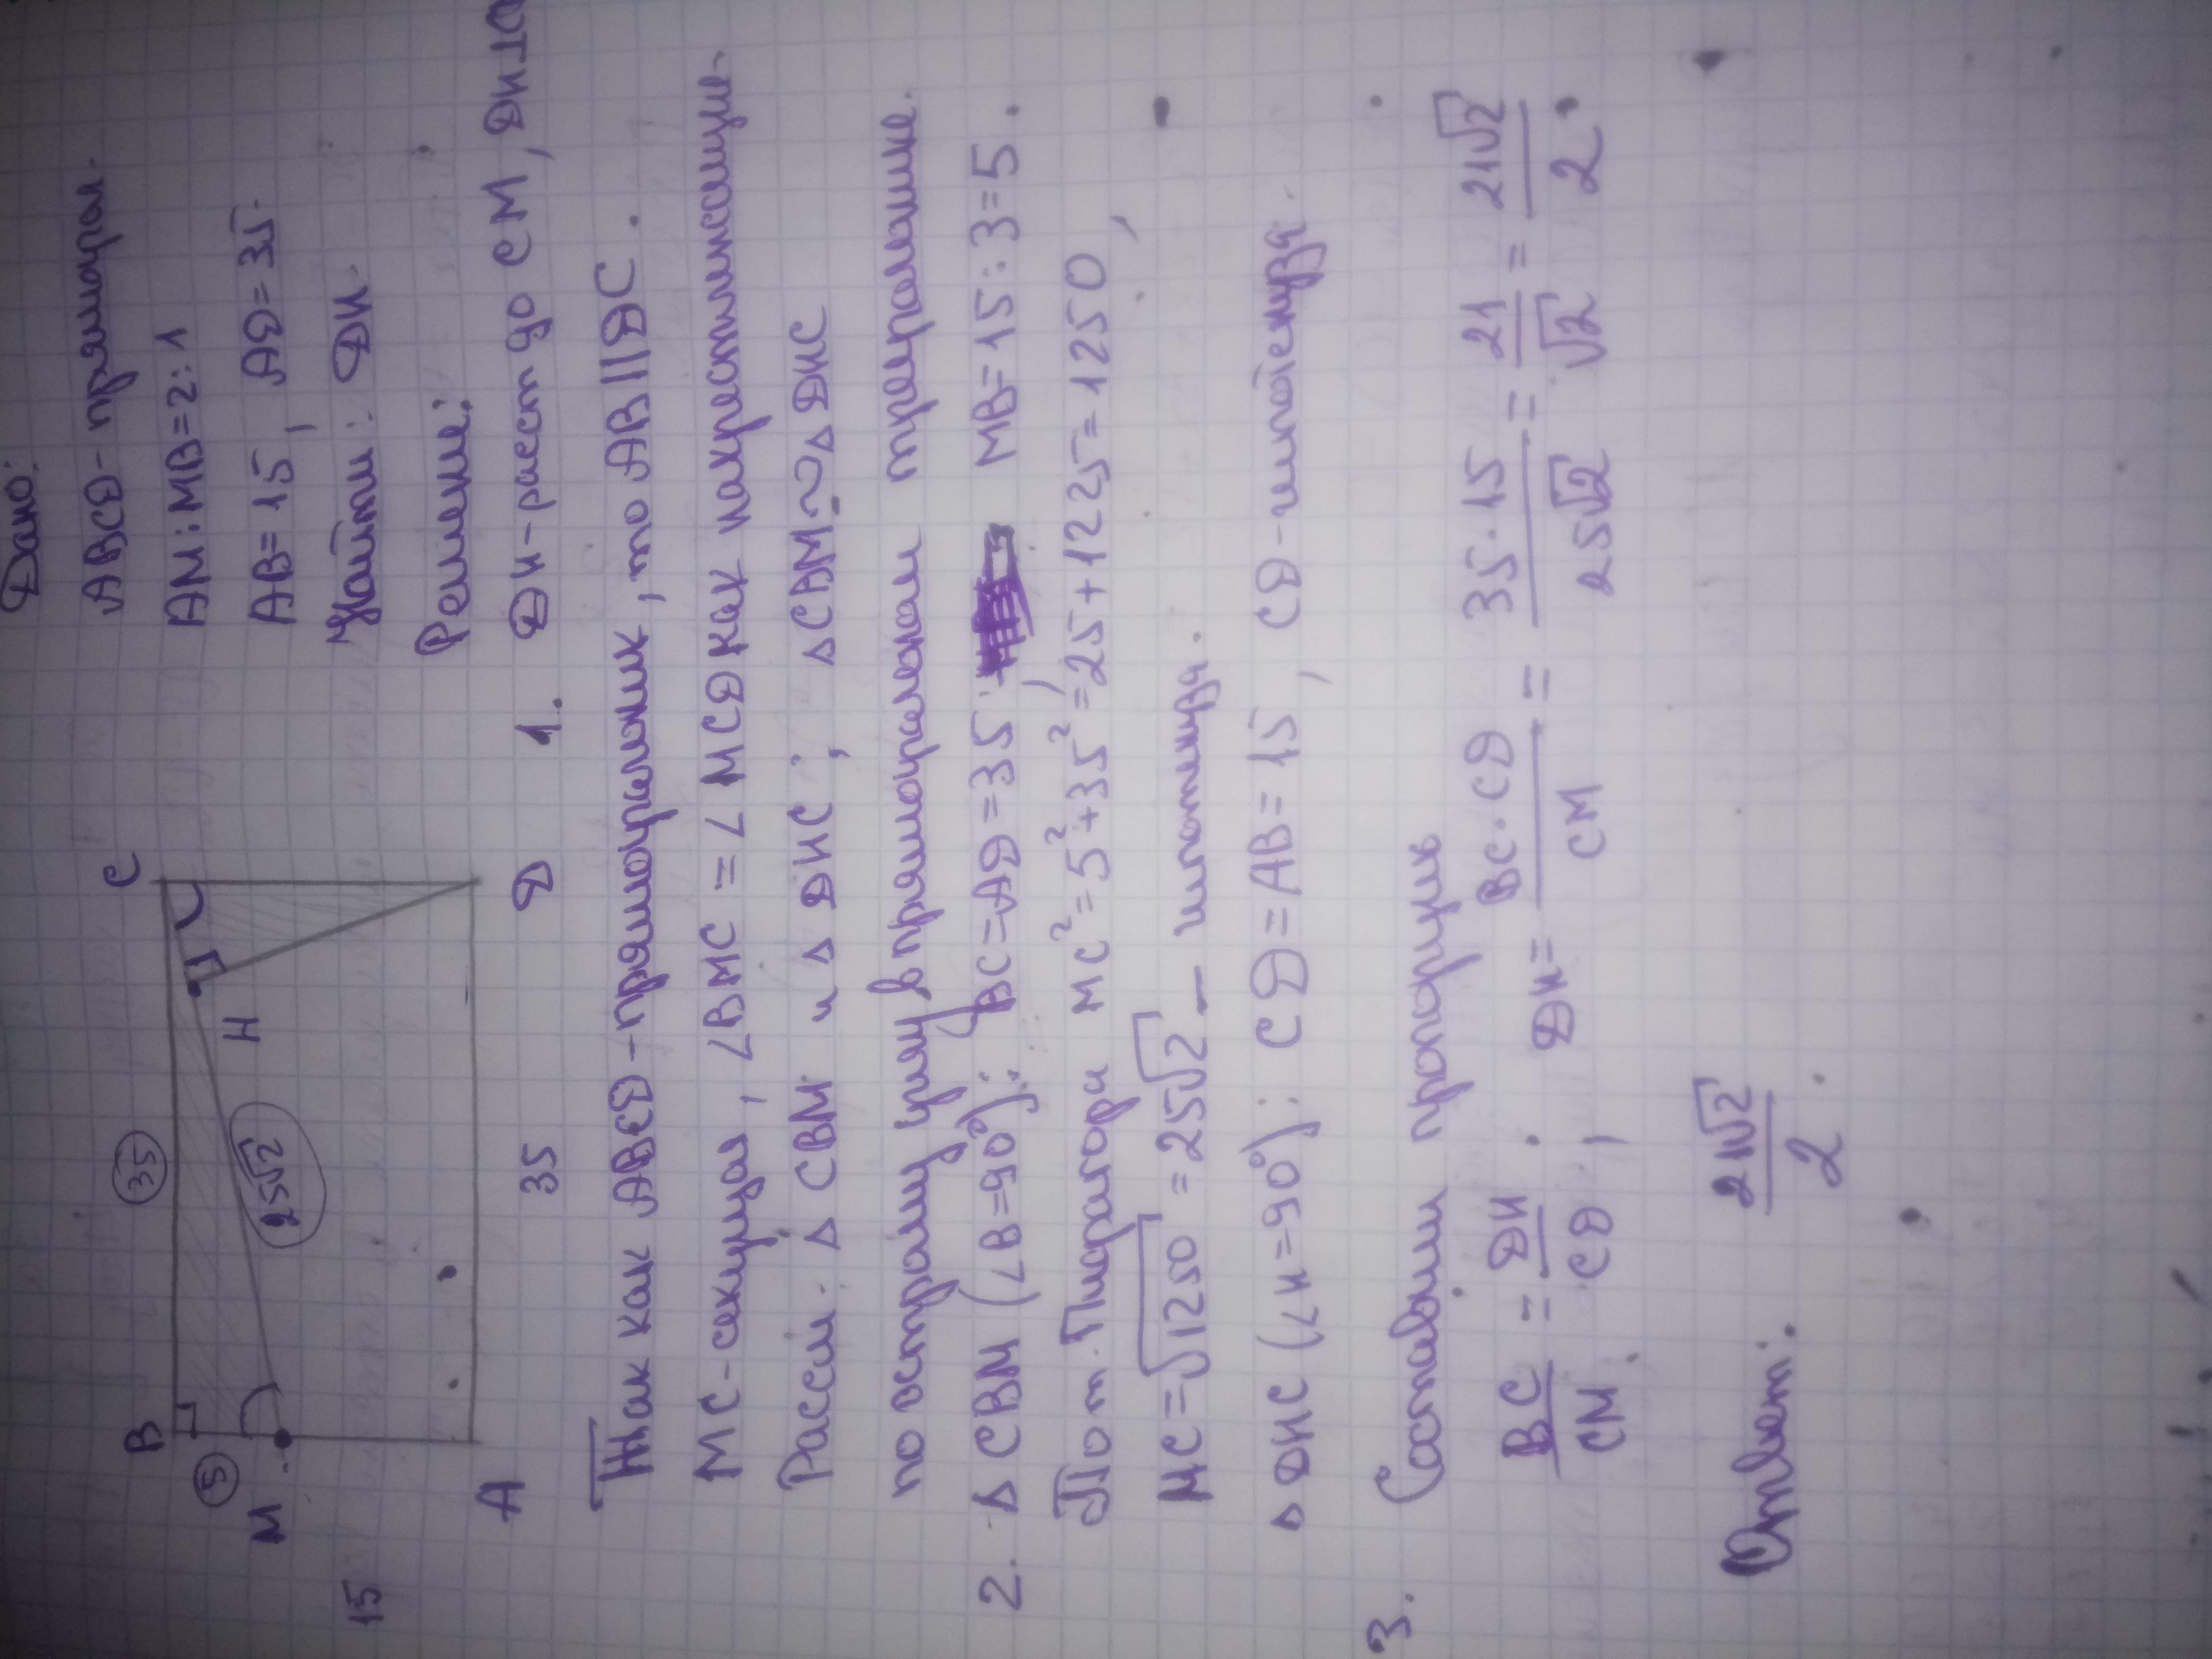 Дано:
ABCD - прямоугол.
AM:MB=2:1
AB=15, AD=35.
Найти: DH.
Решение:
B C
35
5
M
H
25√2
15
A 35 D
1. DH-расст до CM, DH⊥
Так как ABCD-прямоугольник, то AB||DC.
MC-секущая, ∠BMC = ∠MCD как накрестлежащие.
Рассм. Δ CBM и Δ DHC; ΔCBM ~ ΔDHC
по острому углу в прямоугольном треугольнике.
2. Δ CBM (∠B=90°): BC=AD=35. MB=15:3=5.
По т. Пифагора MC²=5²+35²=25+1225=1250,
MC=√1250 = 25√2 - гипотенуза.
Δ DHC (∠H=90°): CD=AB=15, CD-гипотенуза.
3. Составим пропорцию
BC/CM = DH/CD, DH = BC·CD/CM = 35·15/25√2 = 21/√2 = 21√2/2.
Ответ: 21√2/2.